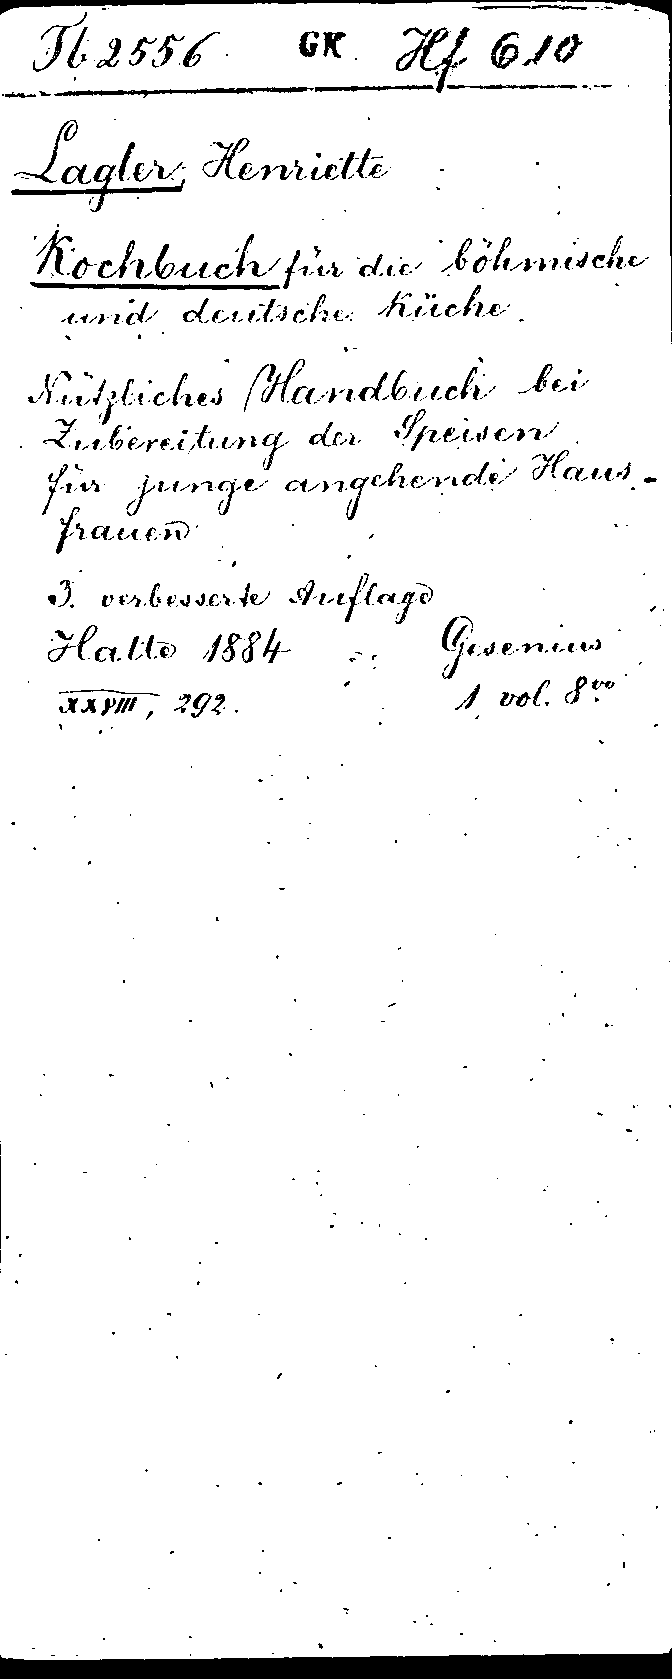 Tb 2556 GK Hf 610
Lagler, Henriette
Kochbuch für die böhmische
und deutsche Küche.
Nützliches Handbuch bei
Zubereitung der Speisen
für junge angehende Haus-
frauen
3. verbesserte Auflage
Halle 1884 Gesenius
XXVIII, 292. 1 vol. 8vo